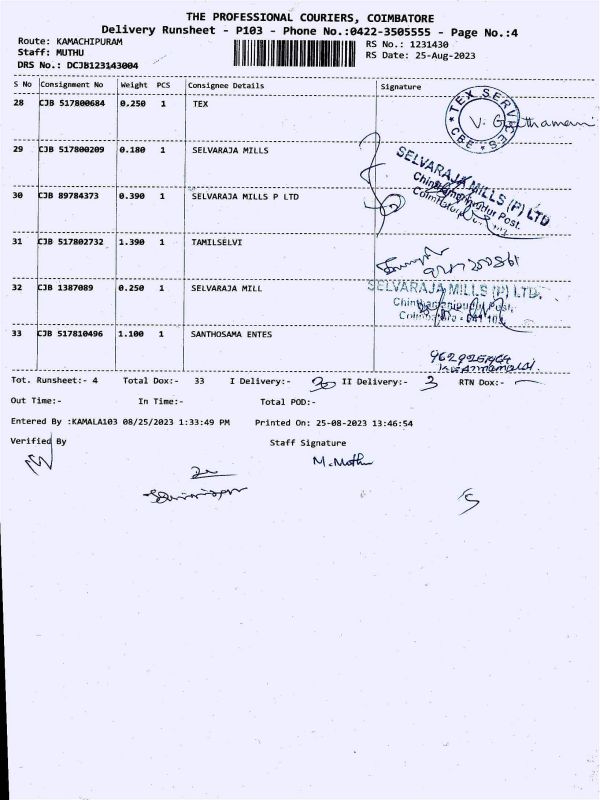 THE PROFESSIONAL COURIERS, COIMBATORE
Delivery Runsheet - P103 - Phone No.:0422-3505555 - Page No.:4
Route: KAMACHIPURAM RS No.: 1231430
Staff: MUTHU RS Date: 25-Aug-2023
DRS No.: DCJB123143004
S No Consignment No Weight PCS Consignee Details Signature
28 CJB 517800684 0.250 1 TEX
TEX SERVICES CBE
29 CJB 517800209 0.180 1 SELVARAJA MILLS
SELVARAJA MILLS (P) LTD
30 CJB 89784373 0.390 1 SELVARAJA MILLS P LTD
31 CJB 517802732 1.390 1 TAMILSELVI
32 CJB 1387089 0.250 1 SELVARAJA MILL
SELVARAJA MILLS (P) LTD.
33 CJB 517810496 1.100 1 SANTHOSAMA ENTES
Tot. Runsheet:- 4 Total Dox:- 33 I Delivery:- 30 II Delivery:- 3 RTN Dox:- —
Out Time:- In Time:- Total POD:-
Entered By :KAMALA103 08/25/2023 1:33:49 PM Printed On: 25-08-2023 13:46:54
Verified By Staff Signature
M. Muthu